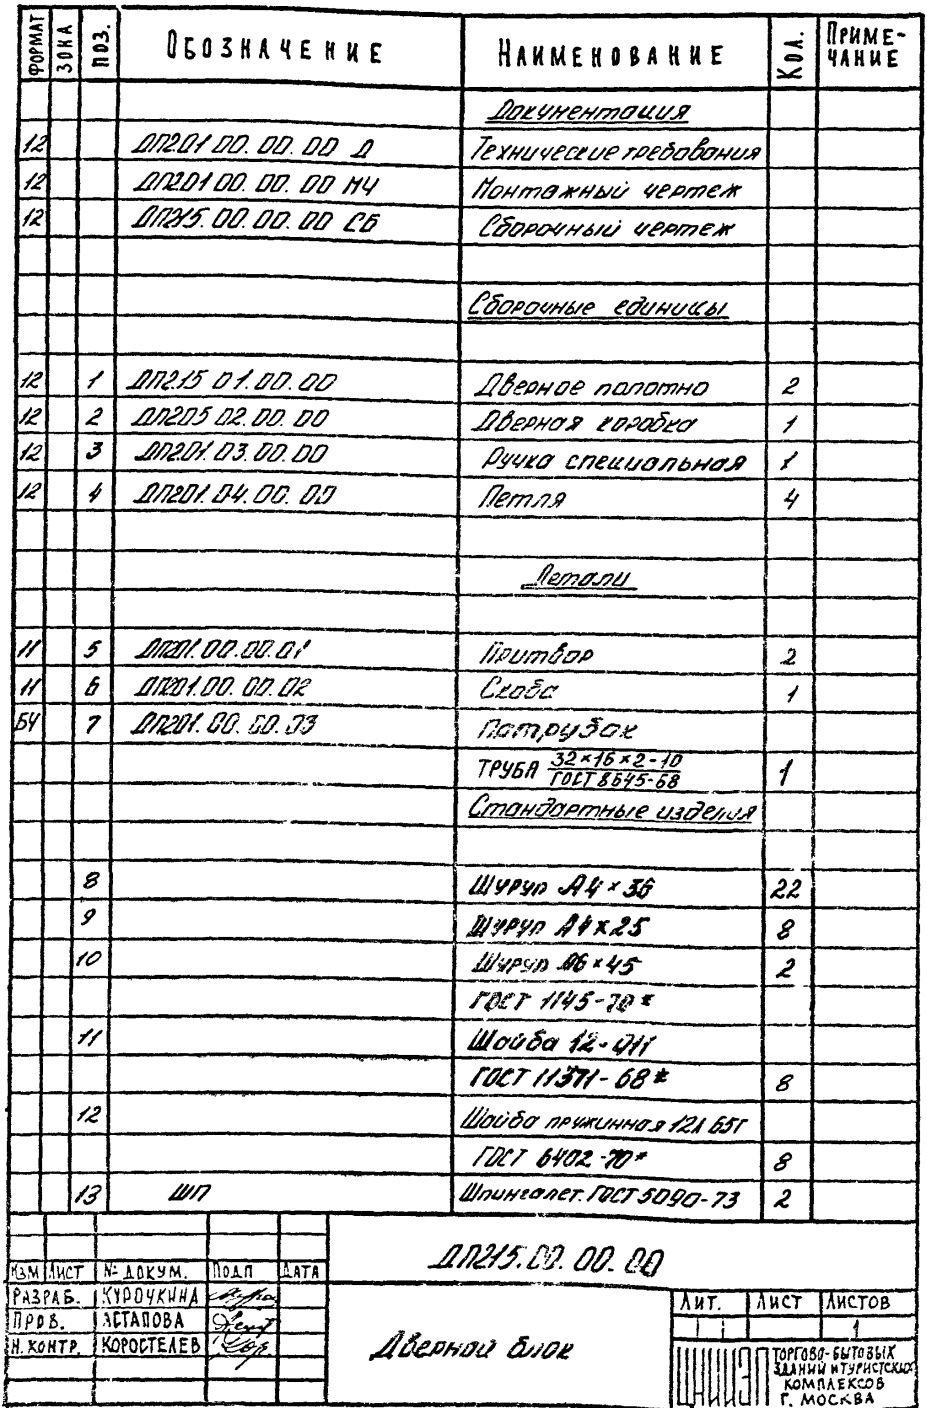 ФОРМАТ ЗОНА ПОЗ. ОБОЗНАЧЕНИЕ НАИМЕНОВАНИЕ КОЛ. ПРИМЕ-
ЧАНИЕ
Документация
12 ДП201 00.00.00 Д Технические требования
12 ДП201 00.00.00 МЧ Монтажный чертеж
12 ДП215.00.00.00 СБ Сборочный чертеж
Сборочные единицы
12 1 ДП215 01.00.00 Дверное полотно 2
12 2 ДП205 02.00.00 Дверная коробка 1
12 3 ДП201.03.00.00 Ручка специальная 1
12 4 ДП201.04.00.00 Петля 4
Детали
11 5 ДП201.00.00.01 Притвор 2
11 6 ДП201.00.00.02 Скоба 1
БЧ 7 ДП201.00.00.03 Патрубок
ТРУБА 32×16×2-10
ГОСТ 8645-68 1
Стандартные изделия
8 Шуруп А4×36 22
9 Шуруп А4×25 8
10 Шуруп А6×45 2
ГОСТ 1145-70*
11 Шайба 12-011
ГОСТ 11371-68* 8
12 Шайба пружинная 12Л 65Г
ГОСТ 6402-70* 8
13 ШП Шпингалет. ГОСТ 5090-73 2
ДП215.00.00.00
ИЗМ ЛИСТ № ДОКУМ. ПОДП ДАТА
РАЗРАБ. КУРОЧКИНА
ПРОВ. АСТАПОВА
Н. КОНТР. КОРОСТЕЛЕВ
Дверной блок
ЛИТ. ЛИСТ ЛИСТОВ
1
ЦНИИЭП ТОРГОВО-БЫТОВЫХ
ЗДАНИЙ И ТУРИСТСКИХ
КОМПЛЕКСОВ
Г. МОСКВА